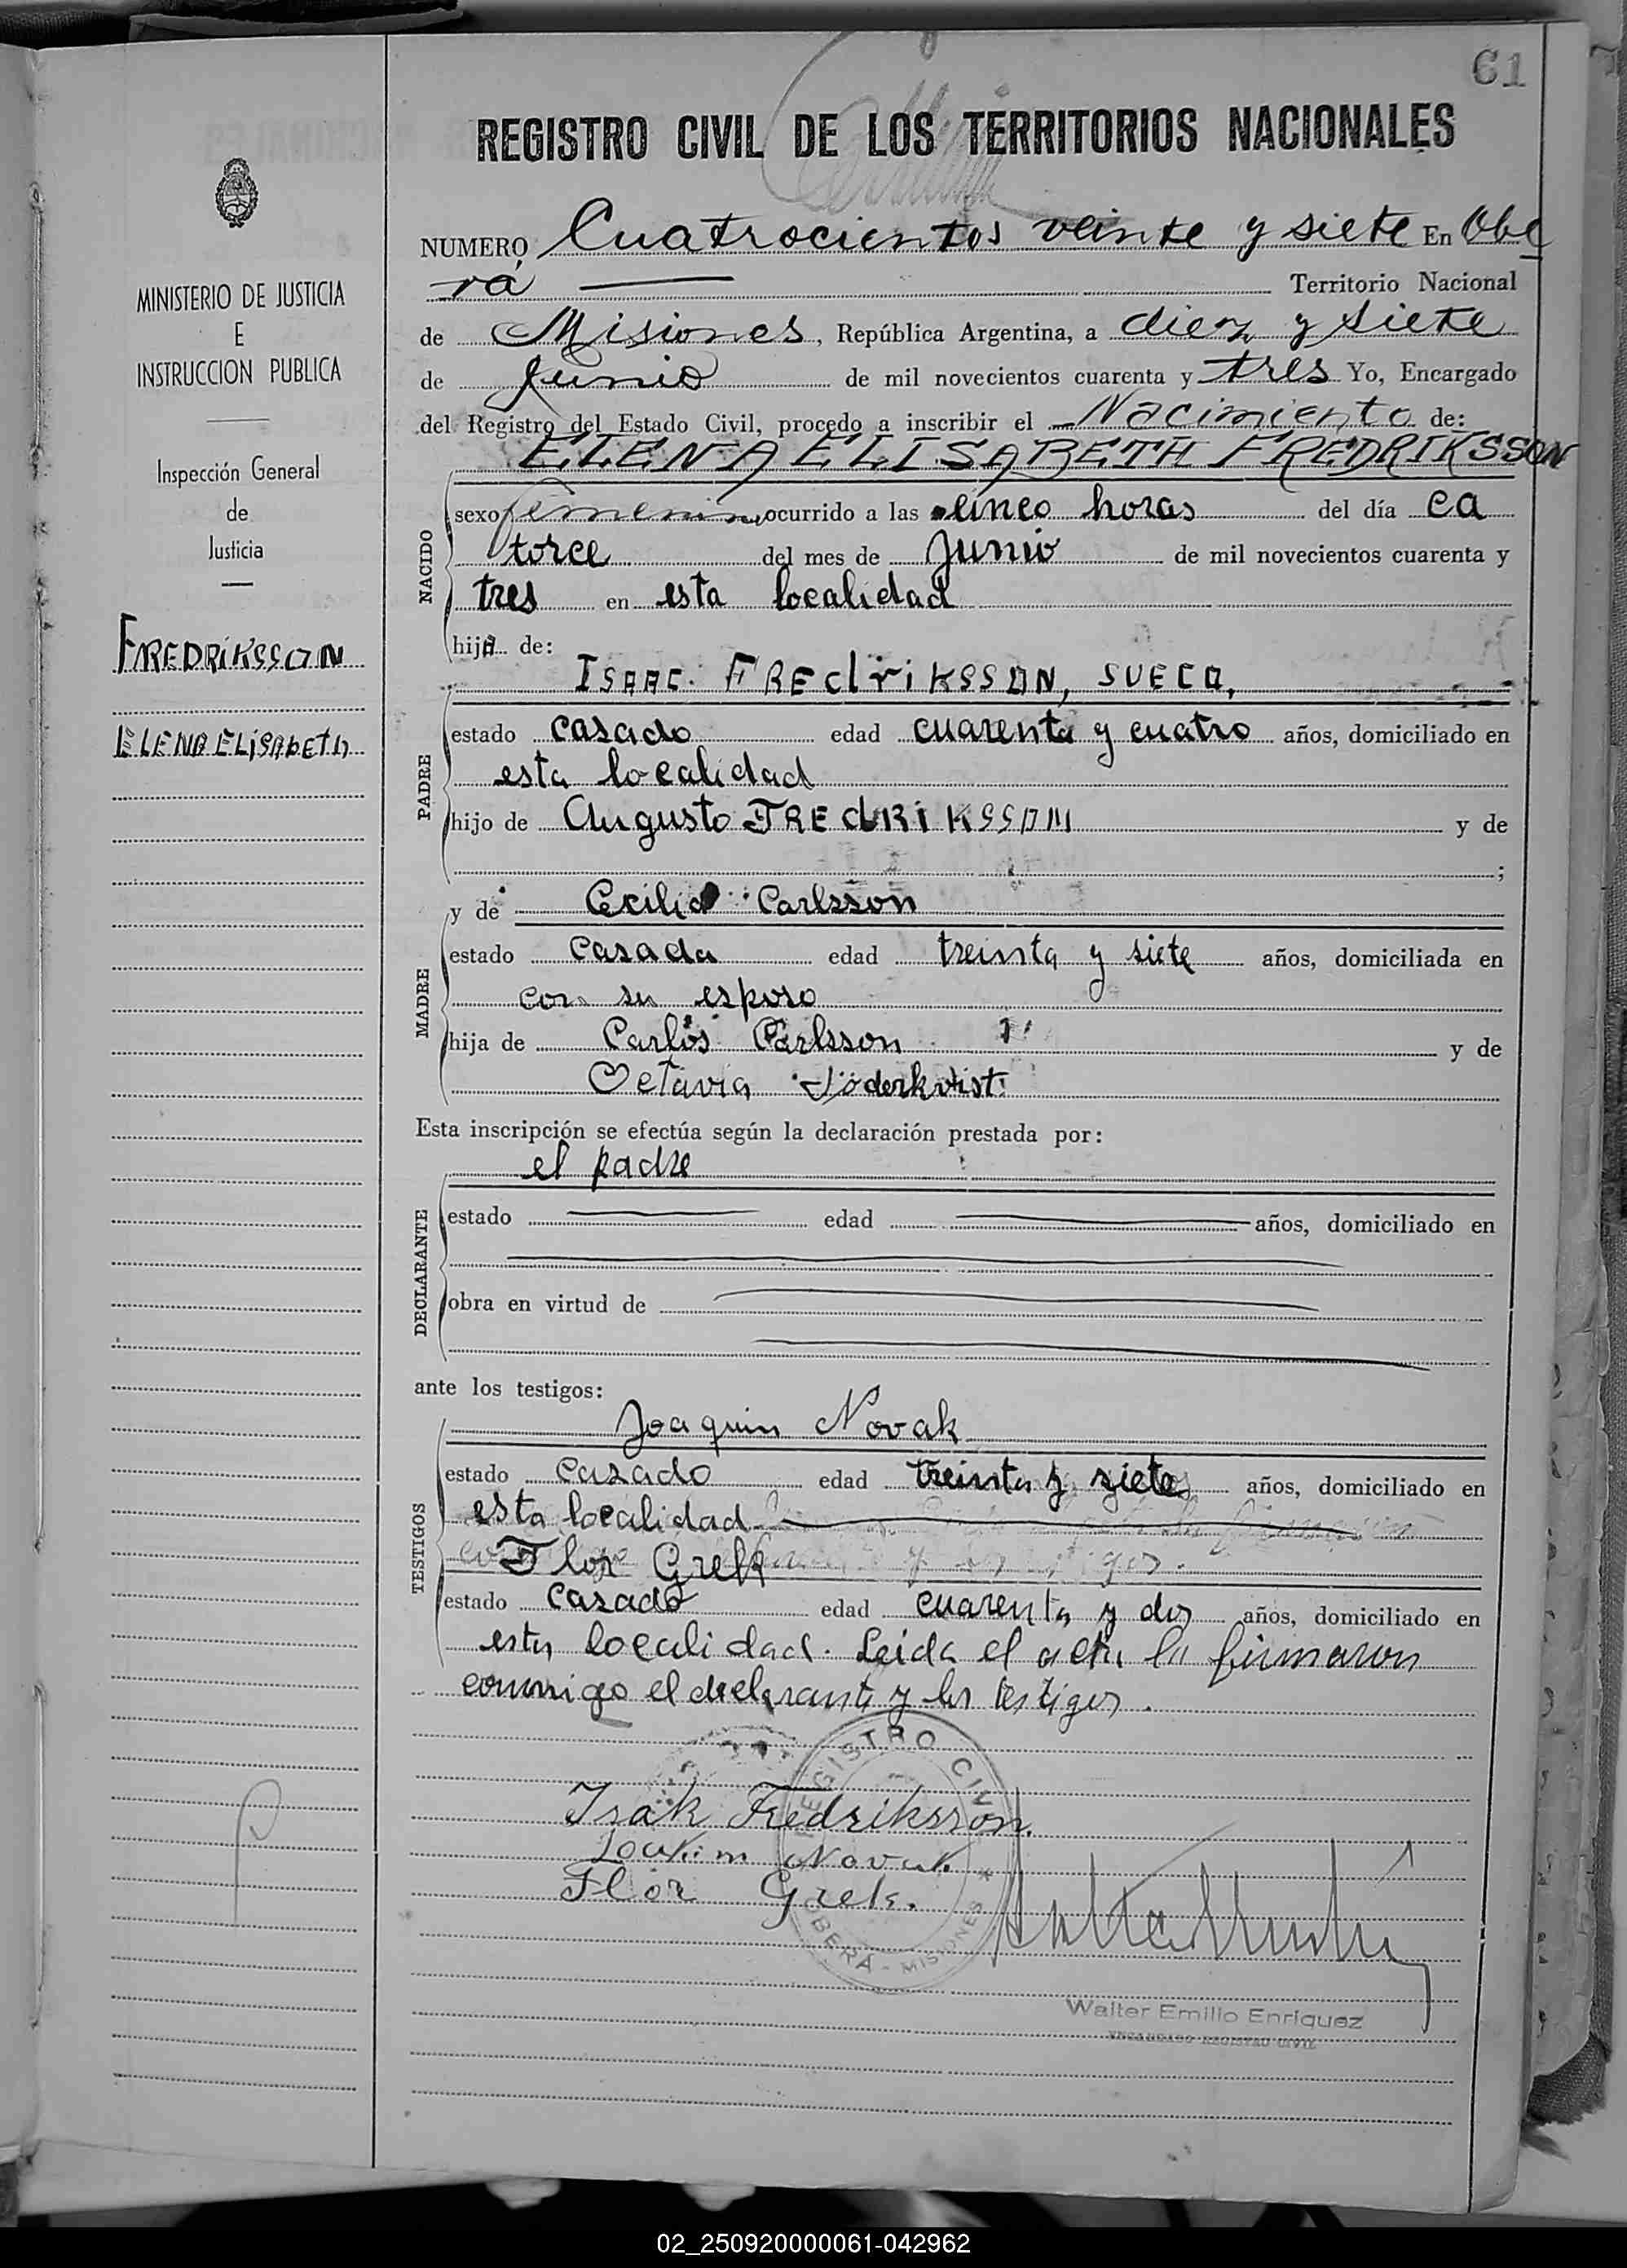 61
REGISTRO CIVIL DE LOS TERRITORIOS NACIONALES
MINISTERIO DE JUSTICIA
E
INSTRUCCION PUBLICA
Inspección General
de
Justicia
FREDRIKSSON
ELENA ELISABETH
NUMERO Cuatrocientos veinte y siete En Obe
rá Territorio Nacional
de Misiones, República Argentina, a diez y siete
de Junio de mil novecientos cuarenta y tres Yo, Encargado
del Registro del Estado Civil, procedo a inscribir el Nacimiento de:
ELENA ELISABETH FREDRIKSSON
NACIDO
sexo femenino ocurrido a las cinco horas del día ca
torce del mes de Junio de mil novecientos cuarenta y
tres en esta localidad
hija de:
ISAAC FREdriKSSON, SUECO,
PADRE
estado casado edad cuarenta y cuatro años, domiciliado en
esta localidad
hijo de Augusto FREdRiKSSON y de
;
MADRE
y de Cecilia Carlsson
estado casada edad treinta y siete años, domiciliada en
con su esposo
hija de Carlos Carlsson y de
Octavia Söderkvist
Esta inscripción se efectúa según la declaración prestada por:
el padre
DECLARANTE
estado edad años, domiciliado en
obra en virtud de
ante los testigos:
TESTIGOS
Joaquin Novak
estado casado edad treinta y siete años, domiciliado en
esta localidad
Flor Grek
estado casado edad cuarenta y dos años, domiciliado en
esta localidad. Leida el acta la firmaron
conmigo el declarante y los testigos.
REGISTRO CIVIL
OBERÁ - MISIONES *
Isak Fredriksson.
Joakim Novak
Flor Grek.
Walter Emilio Enriquez
ENCARGADO REGISTRO CIVIL
02_250920000061-042962